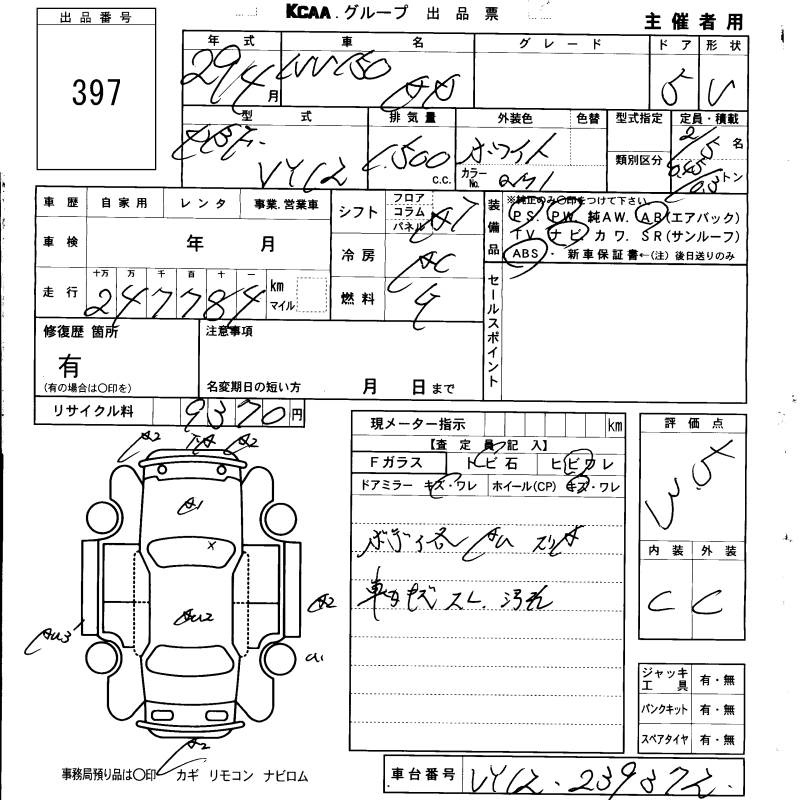 KCAA グループ 出品票
主催者用
出品番号
397
年式 車名 グレード ドア 形状
29/4 月 5 V
型式 排気量 外装色 色替 型式指定 定員・積載
VY12 1,500 c.c. ホワイト カラーNo. QM1 類別区分 2/5 名
トン
車歴 自家用 レンタ 事業.営業車
車検 年 月
走行 十万 万 千 百 十 一 km マイル
247784
シフト フロア コラム パネル AT
冷房 AC
燃料
装備品 ※純正のみ〇印をつけて下さい
PS PW 純AW. AB(エアバック)
TV ナビ カワ. SR(サンルーフ)
ABS・新車保証書←(注)後日送りのみ
セールスポイント
修復歴 箇所
有
(有の場合は〇印を)
注意事項
名変期日の短い方 月 日まで
リサイクル料 9370円
現メーター指示 km
【査定員記入】
Fガラス トビ石 ヒビワレ
ドアミラー キズ・ワレ ホイール(CP) キズ・ワレ
評価点
内装 外装
C C
A2 A2
A1
X
AU2
AU3
A2
A2
ジャッキ工具 有・無
パンクキット 有・無
スペアタイヤ 有・無
事務局預り品は〇印 カギ リモコン ナビロム
車台番号 VY12-239372